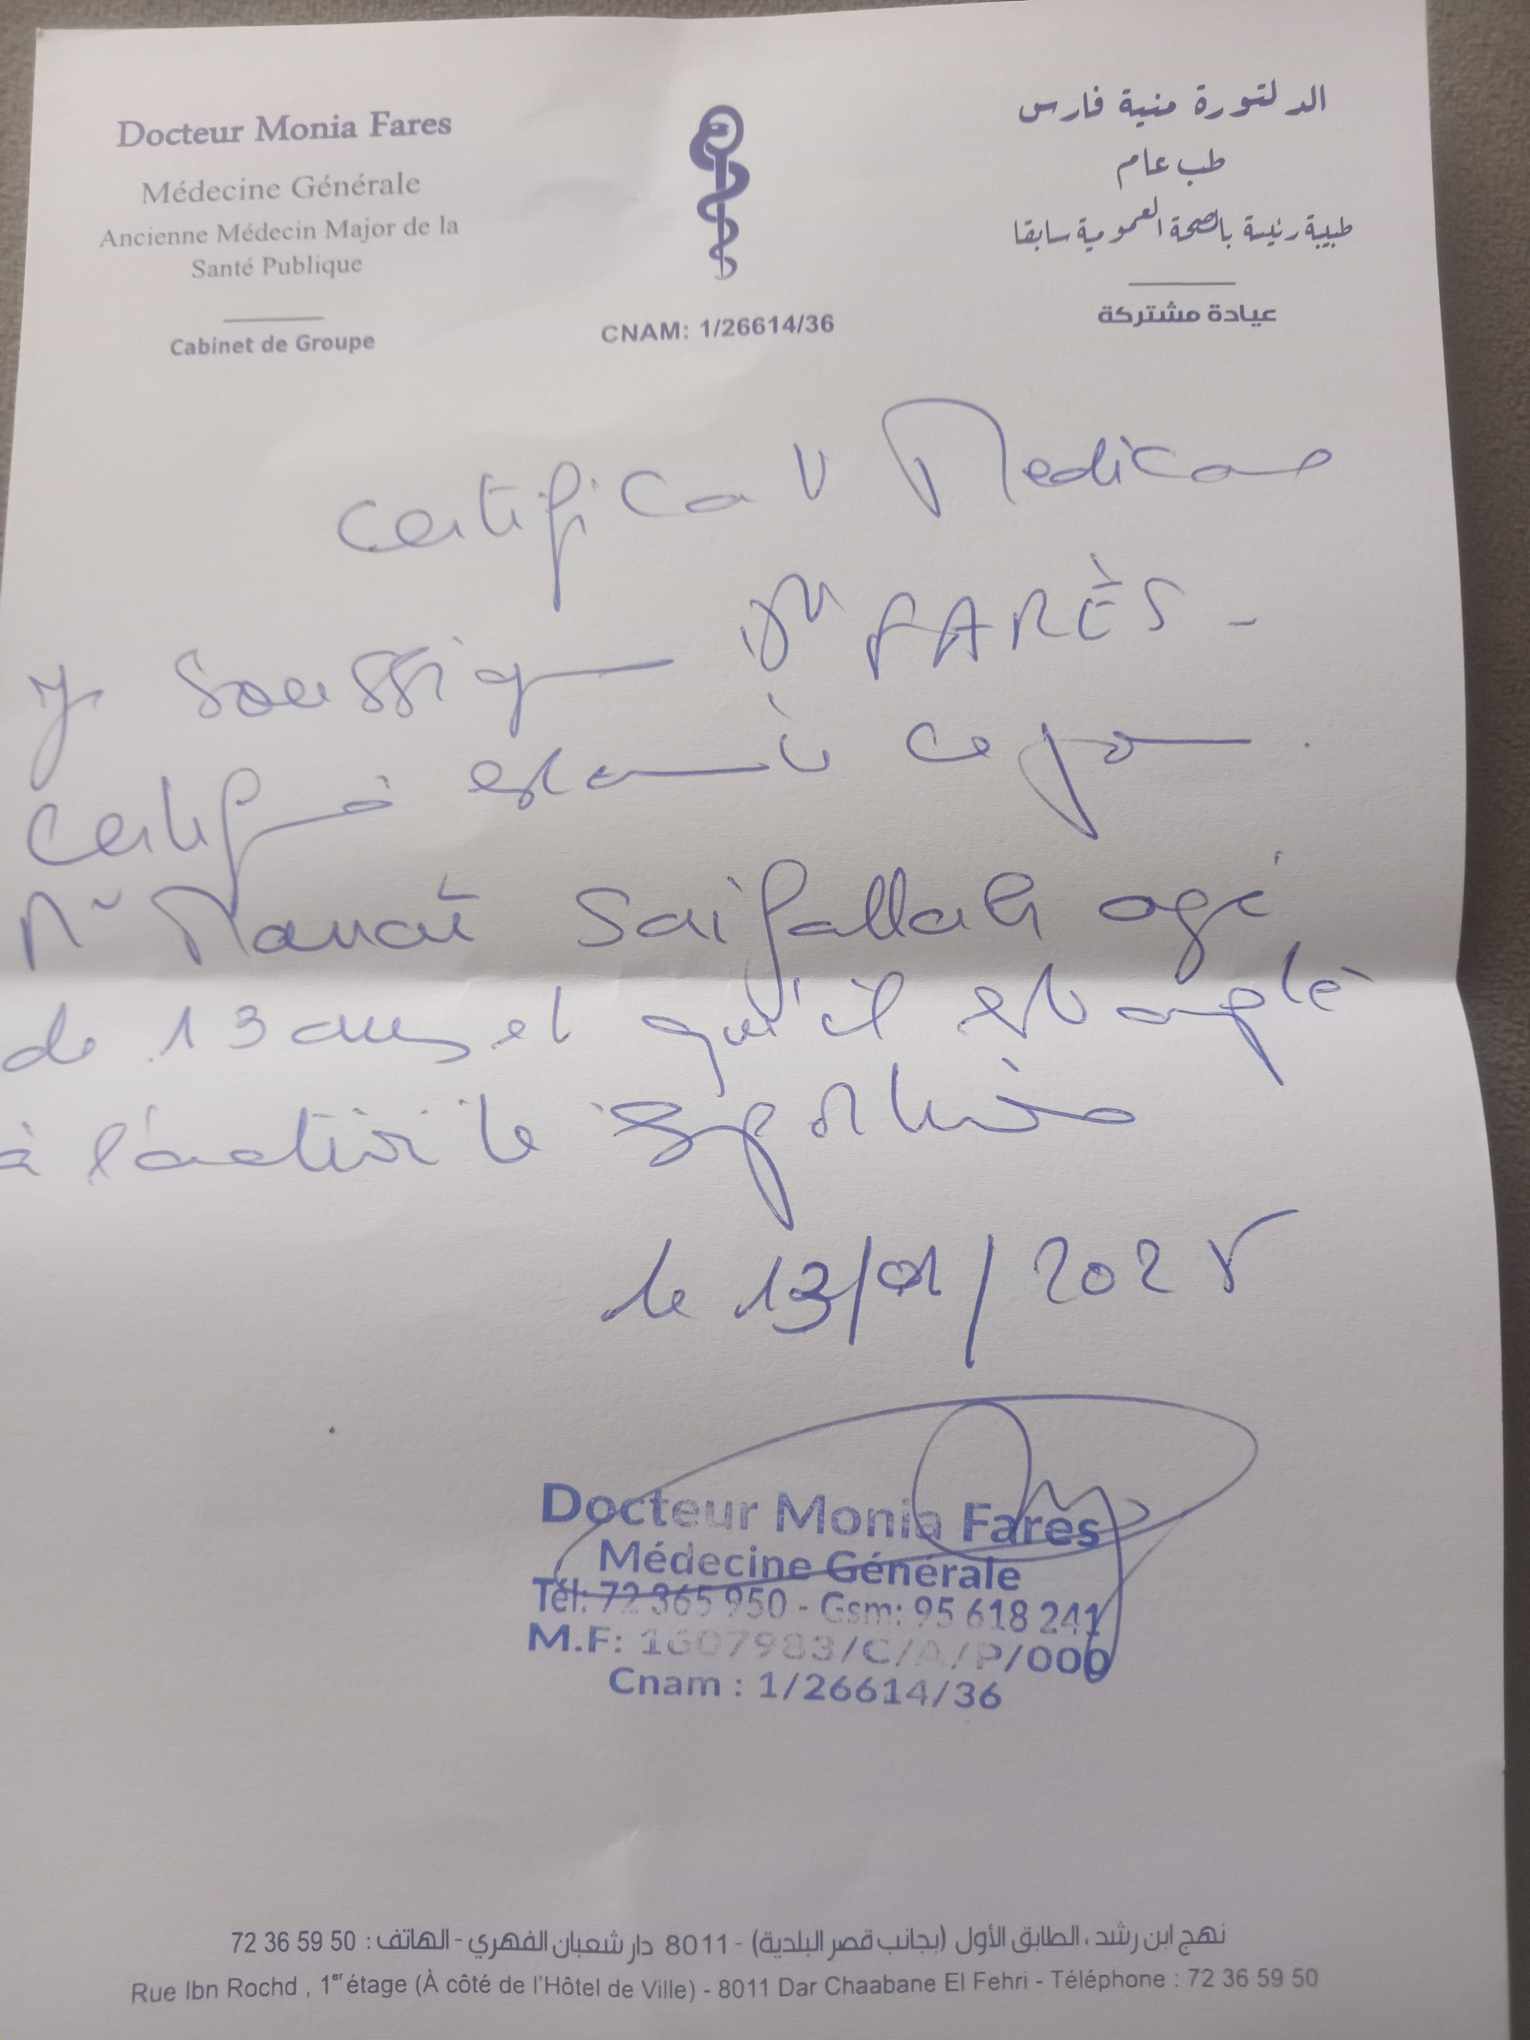 Docteur Monia Fares
Médecine Générale
Ancienne Médecin Major de la
Santé Publique
Cabinet de Groupe
CNAM: 1/26614/36
الدكتورة منية فارس
طب عام
طبيبة رئيسة بالصحة العمومية سابقا
عيادة مشتركة
Certificat Medical
Je soussigné Dr FARÈS -
certifie ce jour
Mr Saifallah agé
de 13 ans et qu'il est apte
à l'activité sportive
le 13/01/2025
Docteur Monia Fares
Médecine Générale
Tél: 72 365 950 - Gsm: 95 618 241
M.F: 1607983/C/A/P/000
Cnam : 1/26614/36
نهج ابن رشد، الطابق الأول (بجانب قصر البلدية) - 8011 دار شعبان الفهري - الهاتف : 72 36 59 50
Rue Ibn Rochd , 1er étage (À côté de l'Hôtel de Ville) - 8011 Dar Chaabane El Fehri - Téléphone : 72 36 59 50